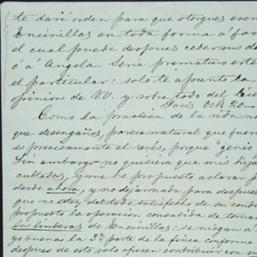 te daré orden para que otorgues escri
Encinillas en toda forma á favo
el cual puede despues cederus de
ó a Angela. Seria prematuro este
el particular: solo te apunto la
opinion de VV. y sobre todo del Lice
Paris Oct. 20
Como la practica de la vida no
que desengaños, parece natural que fuera
es precisamente el revés, porque "genio
Sin embargo no quisiera que mis hij
cultades, y me he propuesto aclarar p
desde ahora, y no dejarmada para despues
que no estoy del todo satisfecho de su condu
propuesto la operacion consabida de tomar
las linderas de Encinillas: se niegan á
yo buenas la 3ª parte de la finca conforme
despues de esto solo ofrecen contribuir con su